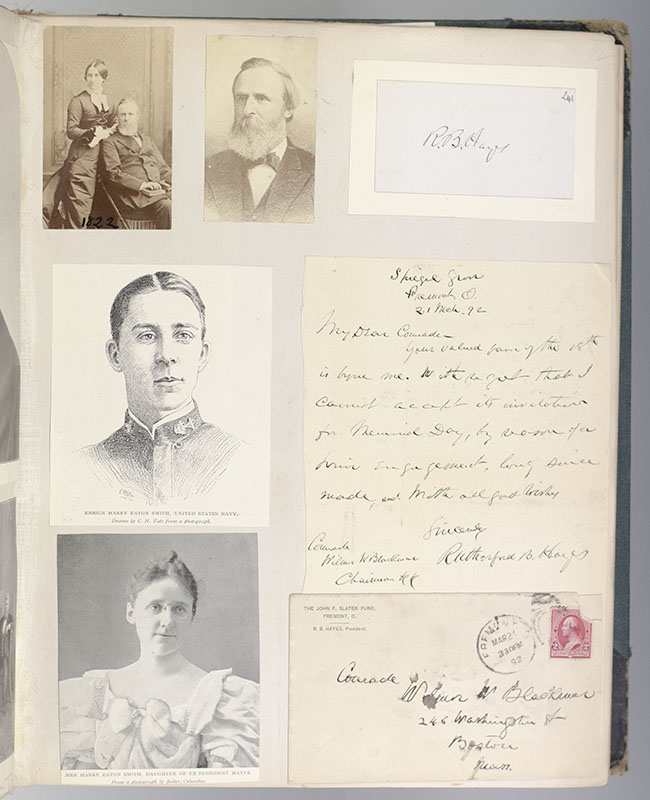 1822
R. B. Hayes
Spiegel Grove
Fremont, O.
21 Mch. 92
My Dear Comrade—
Your valued favor of the 18th
is before me. With regret that I
cannot accept its invitation
for Memorial Day, by reason of a
prior engagement, long since
made, and with all good wishes
Sincerely
Rutherford B. Hayes
Comrade
Wilmon W Blackmar
Chairman
ENSIGN HARRY EATON SMITH, UNITED STATES NAVY.
Drawn by C. H. Tate from a photograph.
THE JOHN F. SLATER FUND,
FREMONT, O.
R. B. HAYES, President.
FREMONT
MAR 21
330PM
92
Comrade
Wilmon W Blackmar
246 Washington St
Boston
Mass.
MRS. HARRY EATON SMITH, DAUGHTER OF EX-PRESIDENT HAYES.
From a photograph by Baker, Columbus